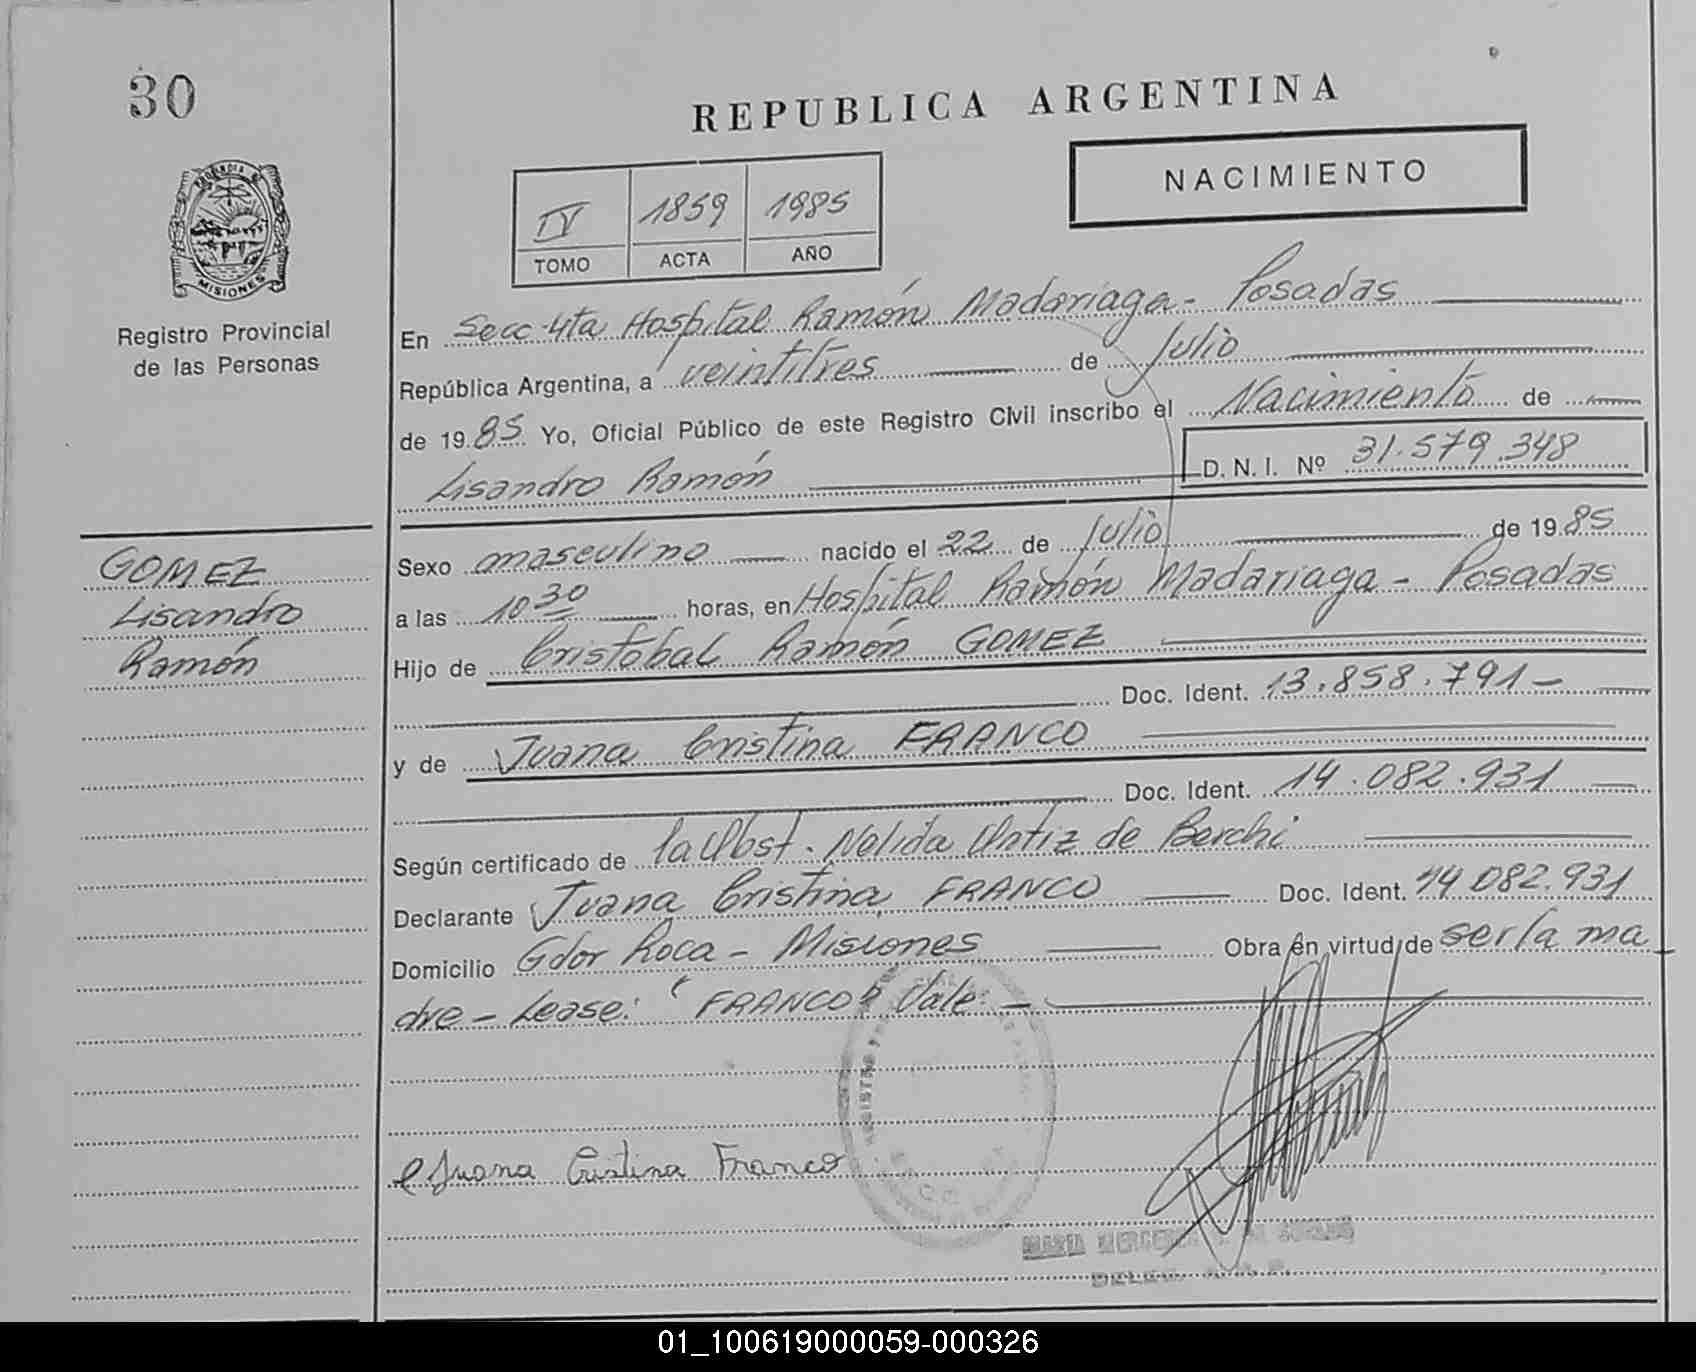 30
REPUBLICA ARGENTINA
NACIMIENTO
IV 1859 1985
TOMO ACTA AÑO
MISIONES
Registro Provincial
de las Personas
En Secc 4ta Hospital Ramón Madariaga - Posadas
República Argentina, a veintitres de Julio
de 1985 Yo, Oficial Público de este Registro Civil inscribo el Nacimiento de
Lisandro Ramón D. N. I. Nº 31.579.348
GOMEZ
Lisandro
Ramón
Sexo masculino nacido el 22 de Julio de 1985
a las 10 30 horas, en Hospital Ramón Madariaga - Posadas
Hijo de Cristobal Ramón GOMEZ
Doc. Ident. 13.858.791 -
y de Juana Cristina FRANCO
Doc. Ident. 14.082.931
Según certificado de la Obst. Nelida Ortiz de Berchi
Declarante Juana Cristina FRANCO Doc. Ident. 14 082.931
Domicilio Gdor Roca - Misiones Obra en virtud de ser la ma
dre - Lease: "FRANCO" Vale -
Juana Cristina Franco
MARIA MERCEDES
01_100619000059-000326